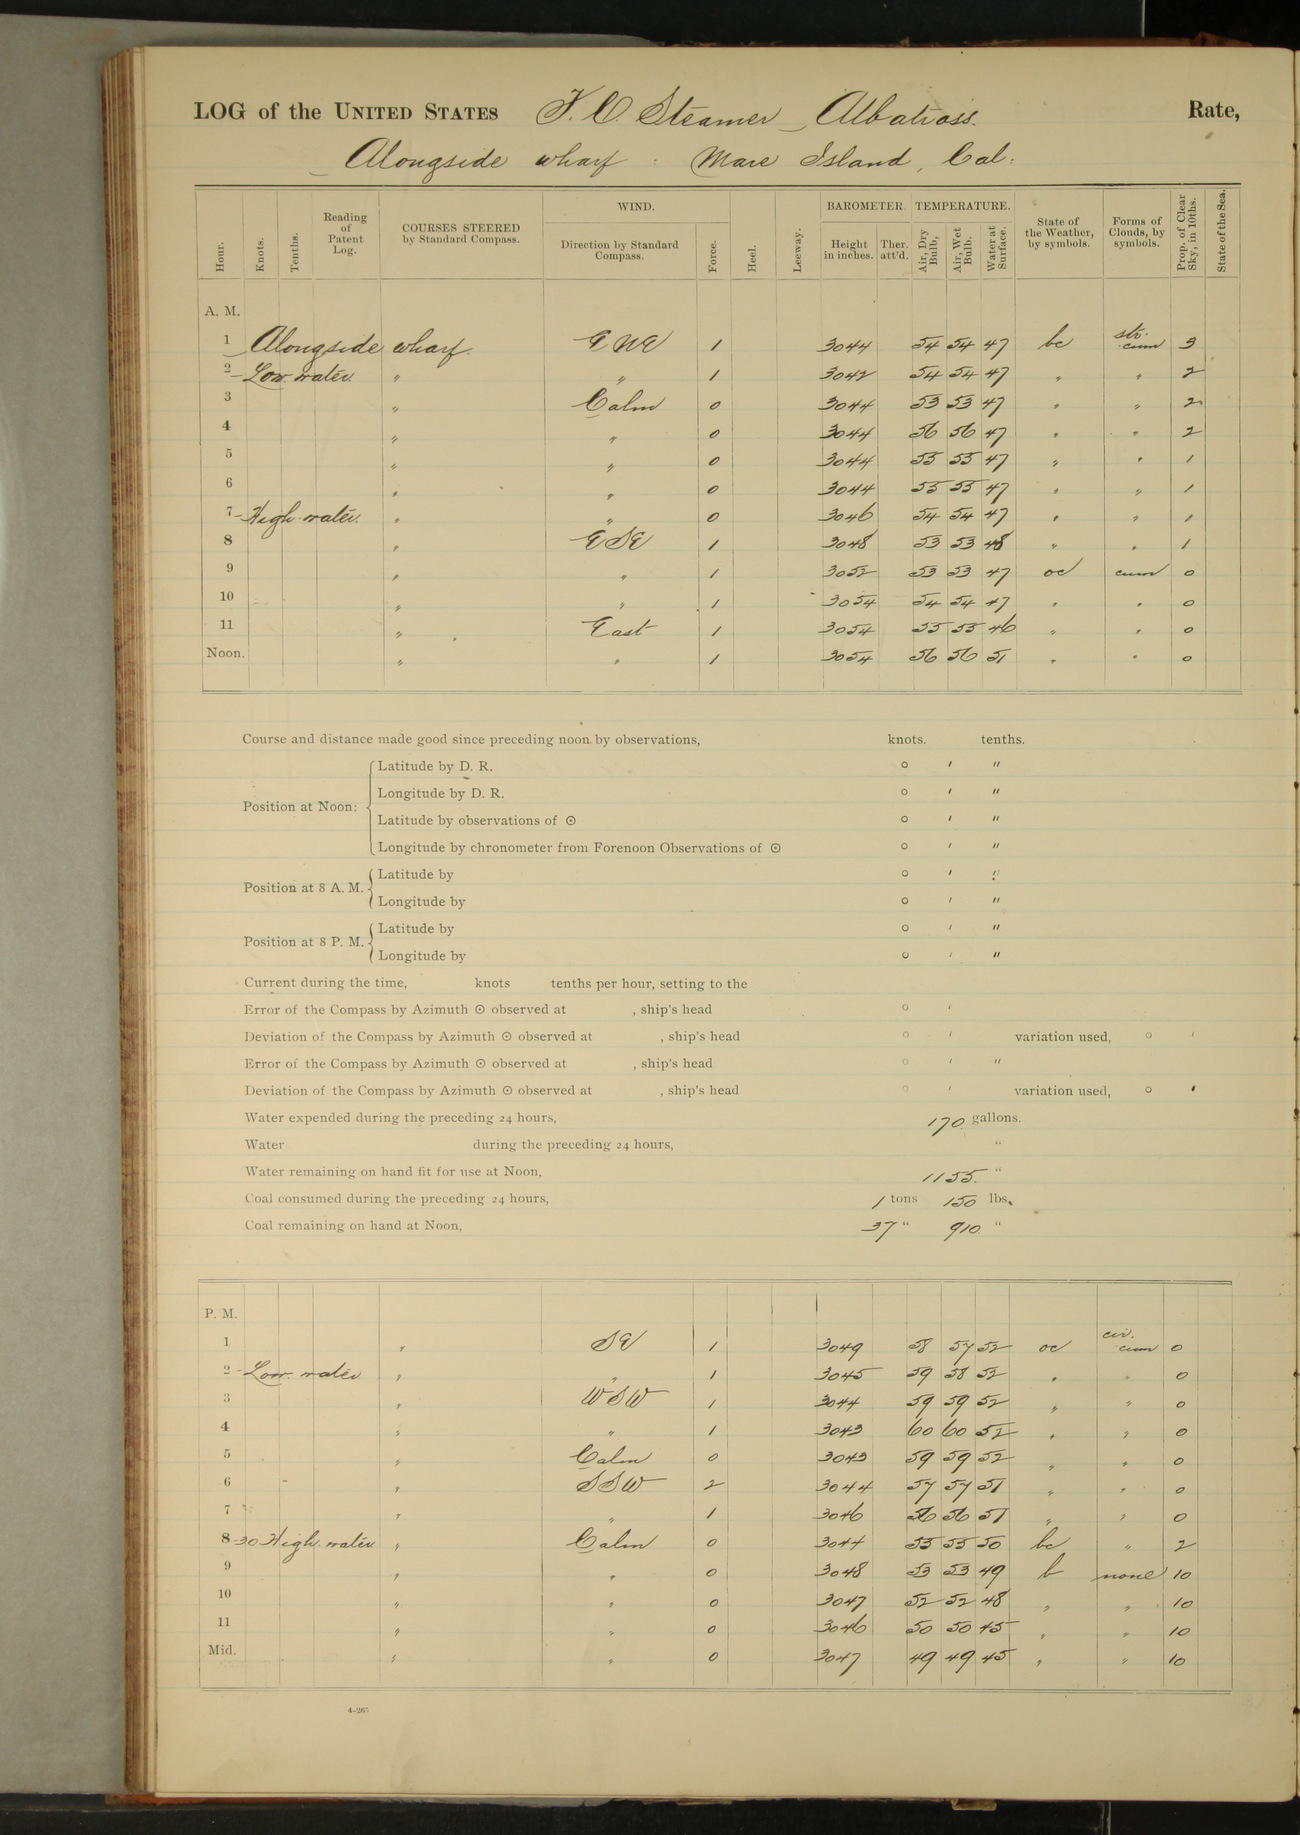 LOG of the UNITED STATES F. C. Steamer Albatross. Rate,
Alongside wharf : Mare Island, Cal:
Hour. Knots. Tenths. Reading of Patent Log. COURSES STEERED by Standard Compass. WIND. Direction by Standard Compass. Force. Heel. Leeway. BAROMETER. Height in inches. Ther. att'd. TEMPERATURE. Air, Dry Bulb, Air, Wet Bulb. Water at Surface. State of the Weather, by symbols. Forms of Clouds, by symbols. Prop. of Clear Sky, in 10ths. State of the Sea.
A. M.
1 Alongside wharf. ENE 1 3044 54 54 47 bc str. cum 3
2 Low water " " 1 3042 54 54 47 " " 2
3 " Calm 0 3044 53 53 47 " " 2
4 " " 0 3044 56 56 47 " " 2
5 " " 0 3044 55 55 47 " " 1
6 " " 0 3044 55 55 47 " " 1
7 High water " " 0 3046 54 54 47 " " 1
8 " ESE 1 3048 53 53 48 " " 1
9 " " 1 3052 53 53 47 oc cum 0
10 " " 1 3054 54 54 47 " " 0
11 " East 1 3054 55 55 46 " " 0
Noon. " " 1 3054 56 56 51 " " 0
Course and distance made good since preceding noon by observations, knots. tenths.
Position at Noon:
Latitude by D. R. ° ′ ″
Longitude by D. R. ° ′ ″
Latitude by observations of ☉ ° ′ ″
Longitude by chronometer from Forenoon Observations of ☉ ° ′ ″
Position at 8 A. M. Latitude by ° ′ ″
Longitude by ° ′ ″
Position at 8 P. M. Latitude by ° ′ ″
Longitude by ° ′ ″
Current during the time, knots tenths per hour, setting to the
Error of the Compass by Azimuth ☉ observed at , ship's head ° ′
Deviation of the Compass by Azimuth ☉ observed at , ship's head ° ′ variation used, ° ′
Error of the Compass by Azimuth ☉ observed at , ship's head ° ′ ″
Deviation of the Compass by Azimuth ☉ observed at , ship's head ° ′ variation used, ° ′
Water expended during the preceding 24 hours, 170 gallons.
Water during the preceding 24 hours, "
Water remaining on hand fit for use at Noon, 1155. "
Coal consumed during the preceding 24 hours, 1 tons 150 lbs.
Coal remaining on hand at Noon, 37 " 910 "
P. M.
1 " SE 1 3049 58 57 52 oc cir. cum 0
2 Low water " " 1 3045 59 58 52 " " 0
3 " WSW 1 3044 59 59 52 " " 0
4 " " 1 3043 60 60 52 " " 0
5 " Calm 0 3043 59 59 52 " " 0
6 " SSW 2 3044 57 57 51 " " 0
7 " " 1 3046 56 56 51 " " 0
8 30 High water " Calm 0 3044 55 55 50 bc " 2
9 " " 0 3048 53 53 49 b none 10
10 " " 0 3047 52 52 48 " " 10
11 " " 0 3046 50 50 45 " " 10
Mid. " " 0 3047 49 49 45 " " 10
4-265